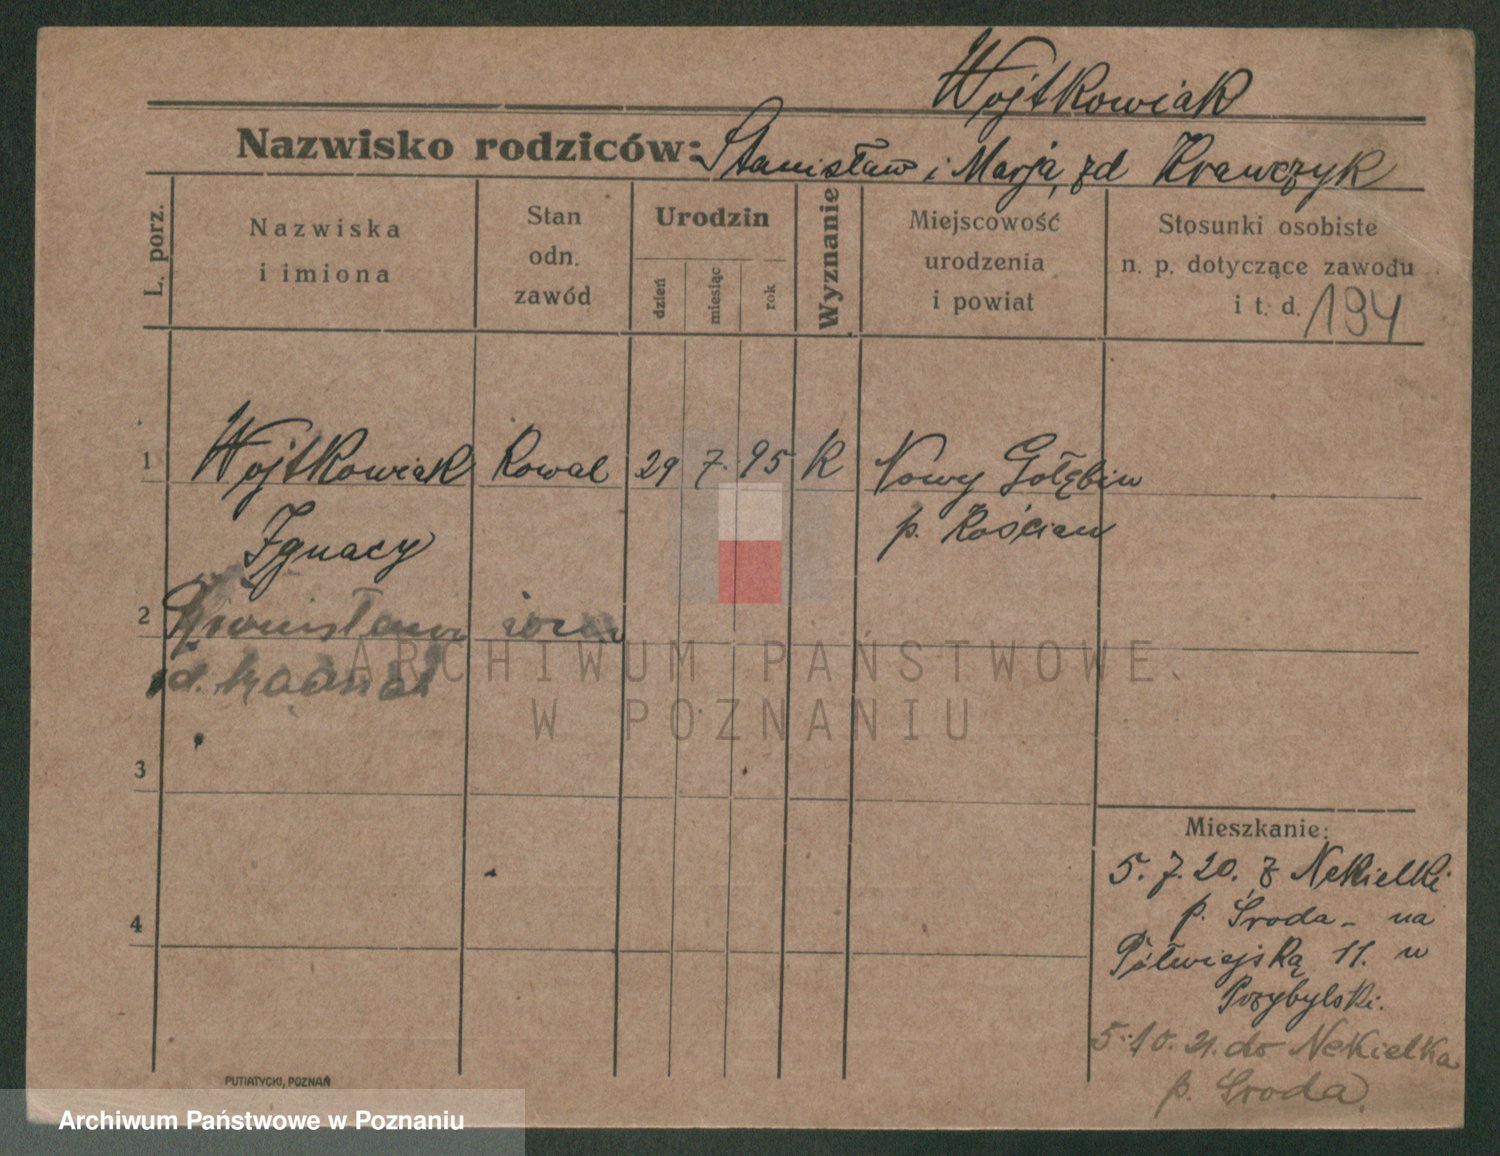 Wojtkowiak
Nazwisko rodziców: Stanisław i Marja, zd Krawczyk
L. porz.
Nazwiska
i imiona
Stan
odn.
zawód
Urodzin
dzień
miesiąc
rok
Wyznanie
Miejscowość
urodzenia
i powiat
Stosunki osobiste
n. p. dotyczące zawodu
i t. d. 194
1 Wojtkowiak Kowal 29 7. 95 K Nowy Gołębin
Ignacy p. Kościan
2 Bronisława
zd.
ARCHIWUM PAŃSTWOWE
W POZNANIU
3
4
Mieszkanie:
5. 7. 20. z Nekielki
p. Środa - na
Półwiejską 11. w
Przybylski.
5. 10. 21. do Nekielka
p. Środa.
PUTIATYCKI, POZNAŃ
Archiwum Państwowe w Poznaniu